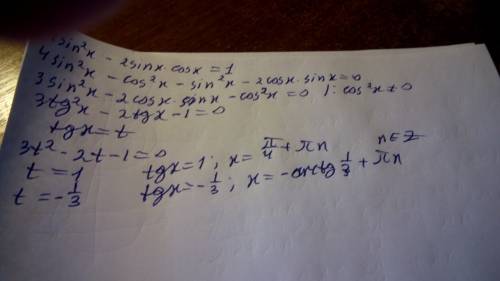 sin²x - 2sinx·cosx = 1
4sin²x - cos²x - sin²x - 2cosx·sinx = 0
3sin²x - 2cosx·sinx - cos²x = 0 |: cos²x ≠ 0
3tg²x - 2tgx - 1 = 0
tgx = t
3t² - 2t - 1 = 0
t = 1 tgx = 1; x = π/4 + πn n ∈ Z
t = -1/3 tgx = -1/3; x = -arctg 1/3 + πn